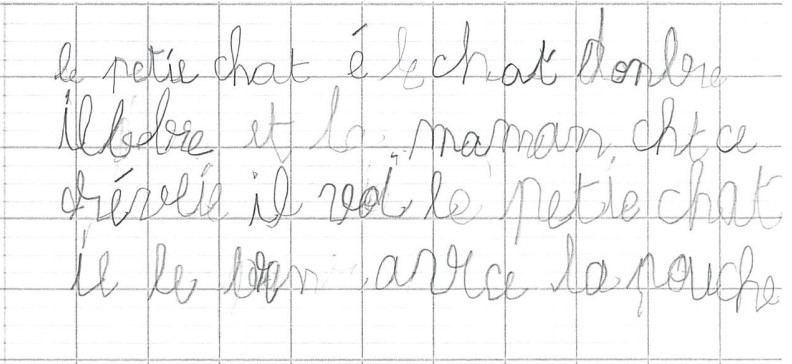 le petie chat é le chat donbre
il bobre et la maman cht ce
réveie il voi le petie chat
il le bran avrce la pouche